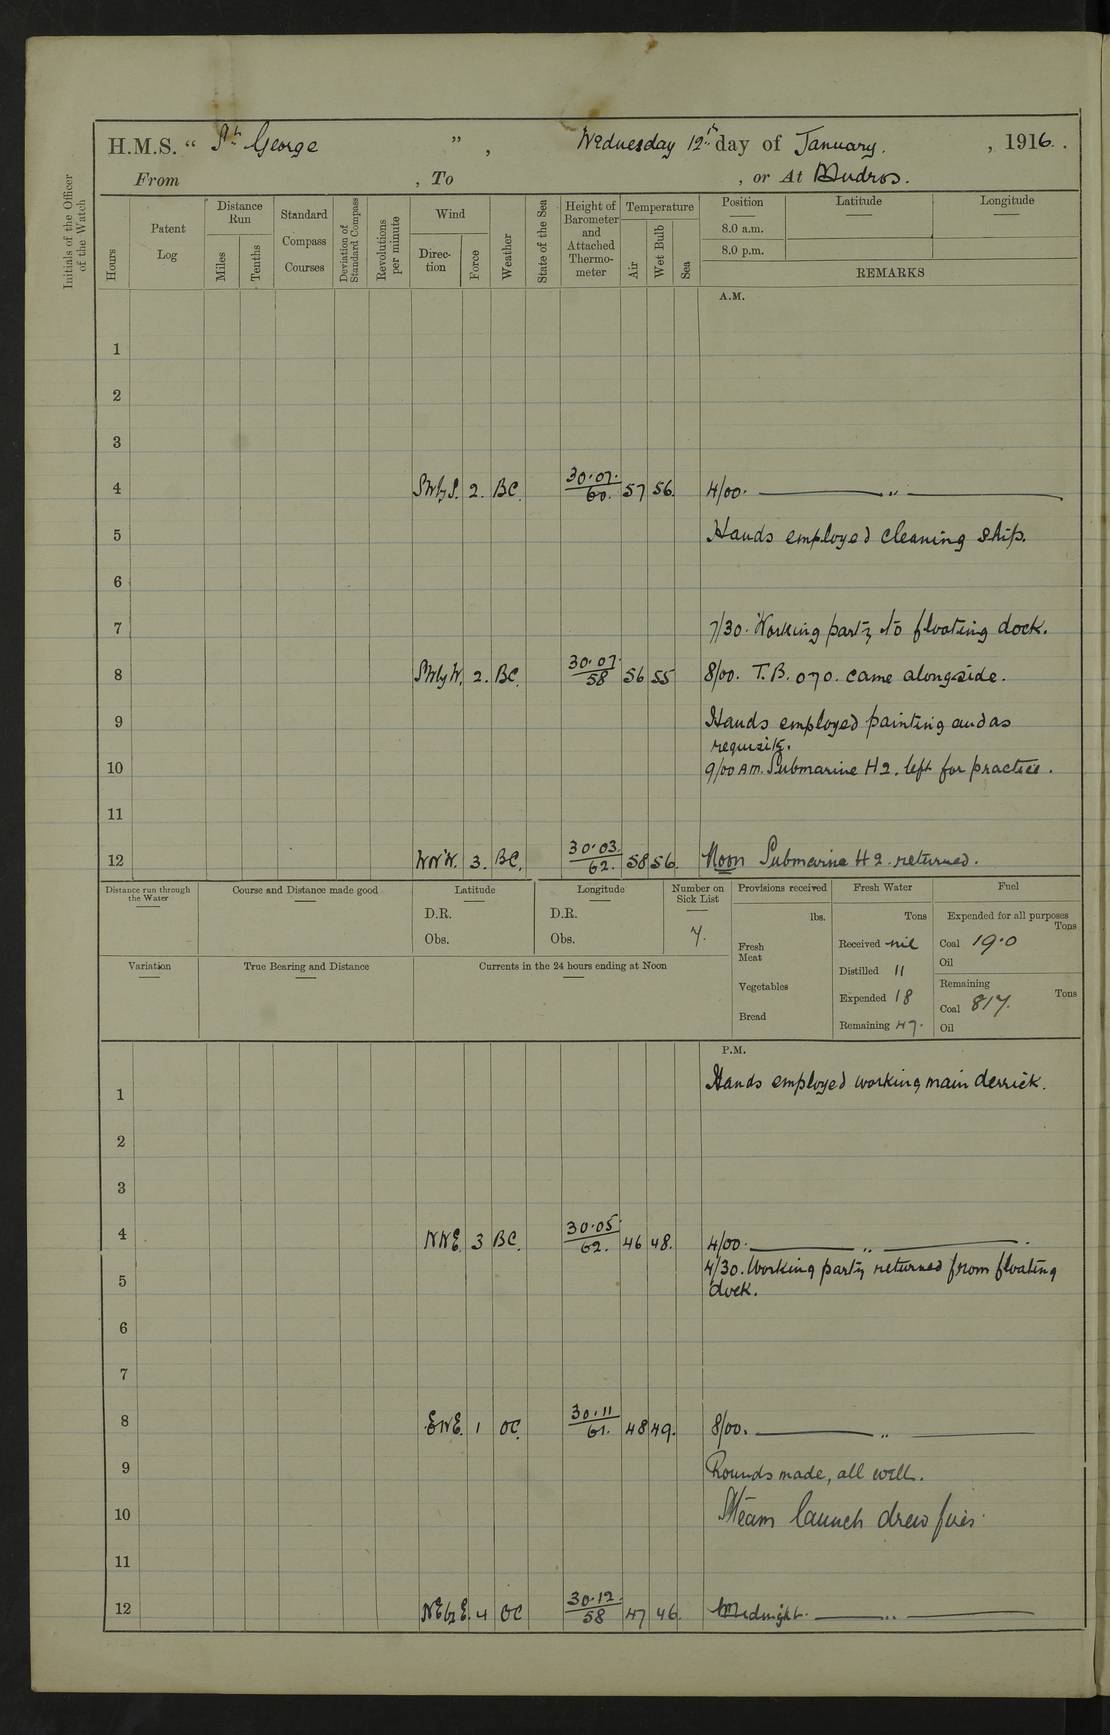 H.M.S. “ St. George ” , Wednesday 12th day of January. , 1916. .
From , To , or At Mudros.
Initials of the Officer of the Watch
Hours
Patent Log
Distance Run
Miles
Tenths
Standard Compass Courses
Deviation of Standard Compass
Revolutions per minute
Wind
Direction
Force
Weather
State of the Sea
Height of Barometer and Attached Thermometer
Temperature
Air
Wet Bulb
Sea
Position Latitude Longitude
8.0 a.m.
8.0 p.m.
REMARKS
A.M.
1
2
3
4 SWbyS. 2. BC. 30.07. 60. 57 56. 4/00. ——— " ———
5 Hands employed cleaning ship.
6
7 7/30. Working party to floating dock.
8 SWbyW. 2. BC. 30.07. 58 56 55 8/00. T.B. 070. came alongside.
9 Hands employed painting and as
requisite.
10 9/00 AM. Submarine H2. left for practice.
11
12 WNW. 3. BC. 30.03. 62. 58 56. Noon Submarine H2. returned.
Distance run through the Water
Course and Distance made good
Latitude
D.R.
Obs.
Longitude
D.R.
Obs.
Number on Sick List
7.
Provisions received
lbs.
Fresh Meat
Vegetables
Bread
Fresh Water
Tons
Received nil
Distilled 11
Expended 18
Remaining 47.
Fuel
Expended for all purposes
Tons
Coal 19.0
Oil
Remaining
Tons
Coal 817.
Oil
Variation
True Bearing and Distance
Currents in the 24 hours ending at Noon
P.M.
1 Hands employed working main derrick.
2
3
4 NNE. 3 BC. 30.05. 62. 46 48. 4/00. ——— " ———
4/30. Working party returned from floating
5 dock.
6
7
8 ENE. 1 OC. 30.11 61. 48 49. 8/00. ——— " ———
9 Rounds made, all well.
10 Steam launch drew fires.
11
12 NEbyE. 4 OC 30.12. 58 47 46. Midnight. ——— " ———